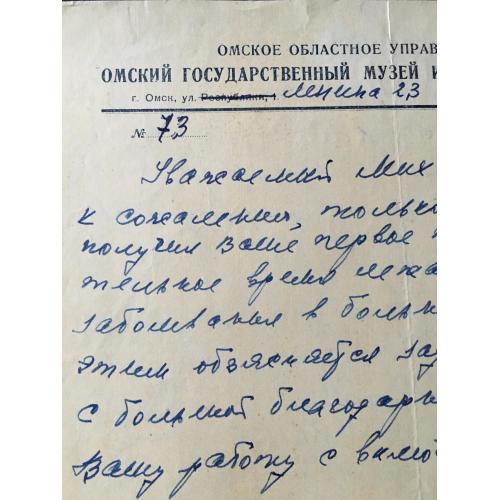 ОМСКОЕ ОБЛАСТНОЕ УПРАВ
ОМСКИЙ ГОСУДАРСТВЕННЫЙ МУЗЕЙ И
г. Омск, ул. Республики, 1. Ленина 23
№ 73
Уважаемый Мих
к сожалению, только
получил Ваше первое
тельное время лежа
заболевания в больн
этим объясняется зад
с большой благодарн
Вашу работу с